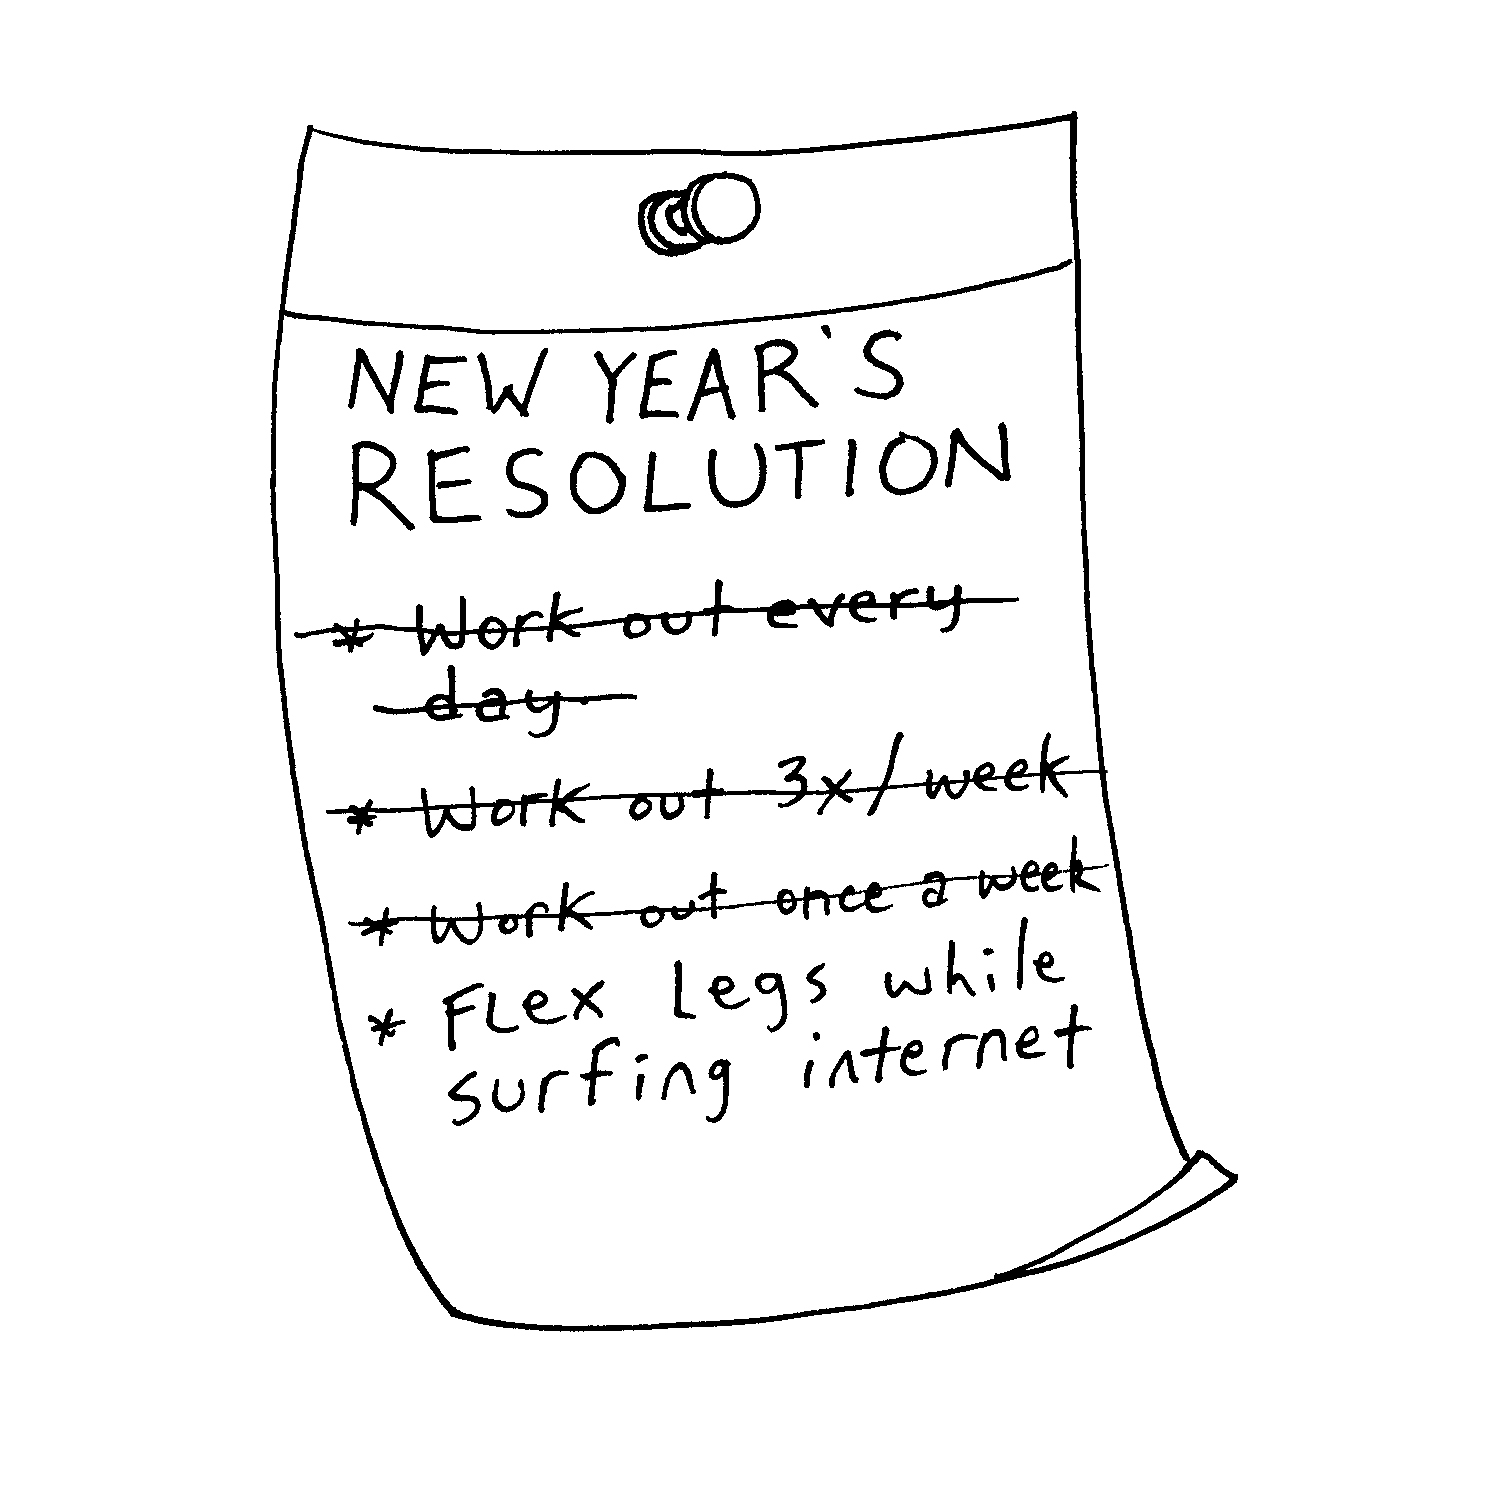 NEW YEAR'S
RESOLUTION
* Work out every
day.
* Work out 3x/week
* Work out once a week
* Flex legs while
surfing internet